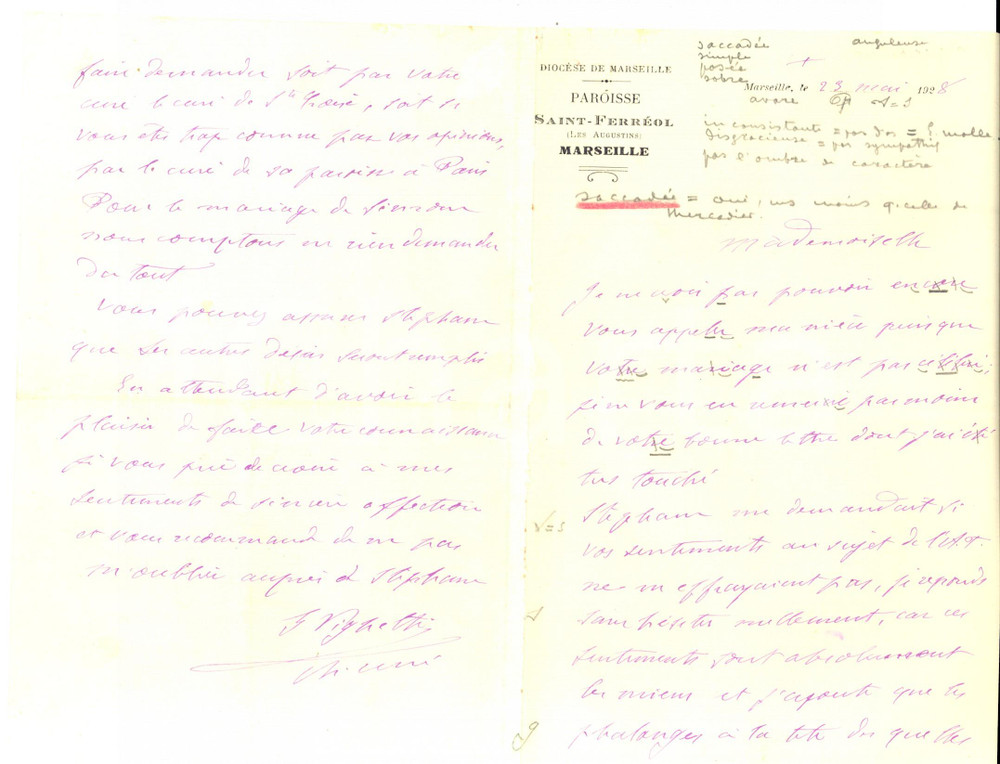 DIOCÈSE DE MARSEILLE
PAROISSE
SAINT-FERRÉOL
(LES AUGUSTINS)
MARSEILLE
saccadée
simple
posée
sobre
anguleuse
Marseille, le 23 mai 1928
avare
inconsistante = pas d'os = molle
disgracieuse = pas sympathie
pas l'ombre de caractère
saccadée = oui, mais moins q. celle de
Mercadier.
Mademoiselle
Je ne crois pas pouvoir encore
vous appeler ma nièce puisque
votre mariage n'est pas célébré,
je ne vous en remercie pas moins
de votre bonne lettre dont j'ai été
très touché
Stéphane me demandait si
vos sentiments au sujet de l'A.F.
ne m'effrayaient pas, je réponds
sans hésiter nullement, car ces
sentiments sont absolument
les miens et j'ajoute que les
phalanges à la tête des quelles
faire demander soit par votre
curé le curé de Ste, soit si
vous êtes trop connue par vos opinions,
par le curé de sa paroisse à Paris
Pour le mariage de Simone
nous comptons ne rien demander
du tout
Vous pouvez assurer Stéphane
que ses autres désirs seront remplis
En attendant d'avoir le
plaisir de faire votre connaissance
je vous prie de croire à mes
sentiments de sincère affection
et vous recommande de ne pas
m'oublier auprès de Stéphane